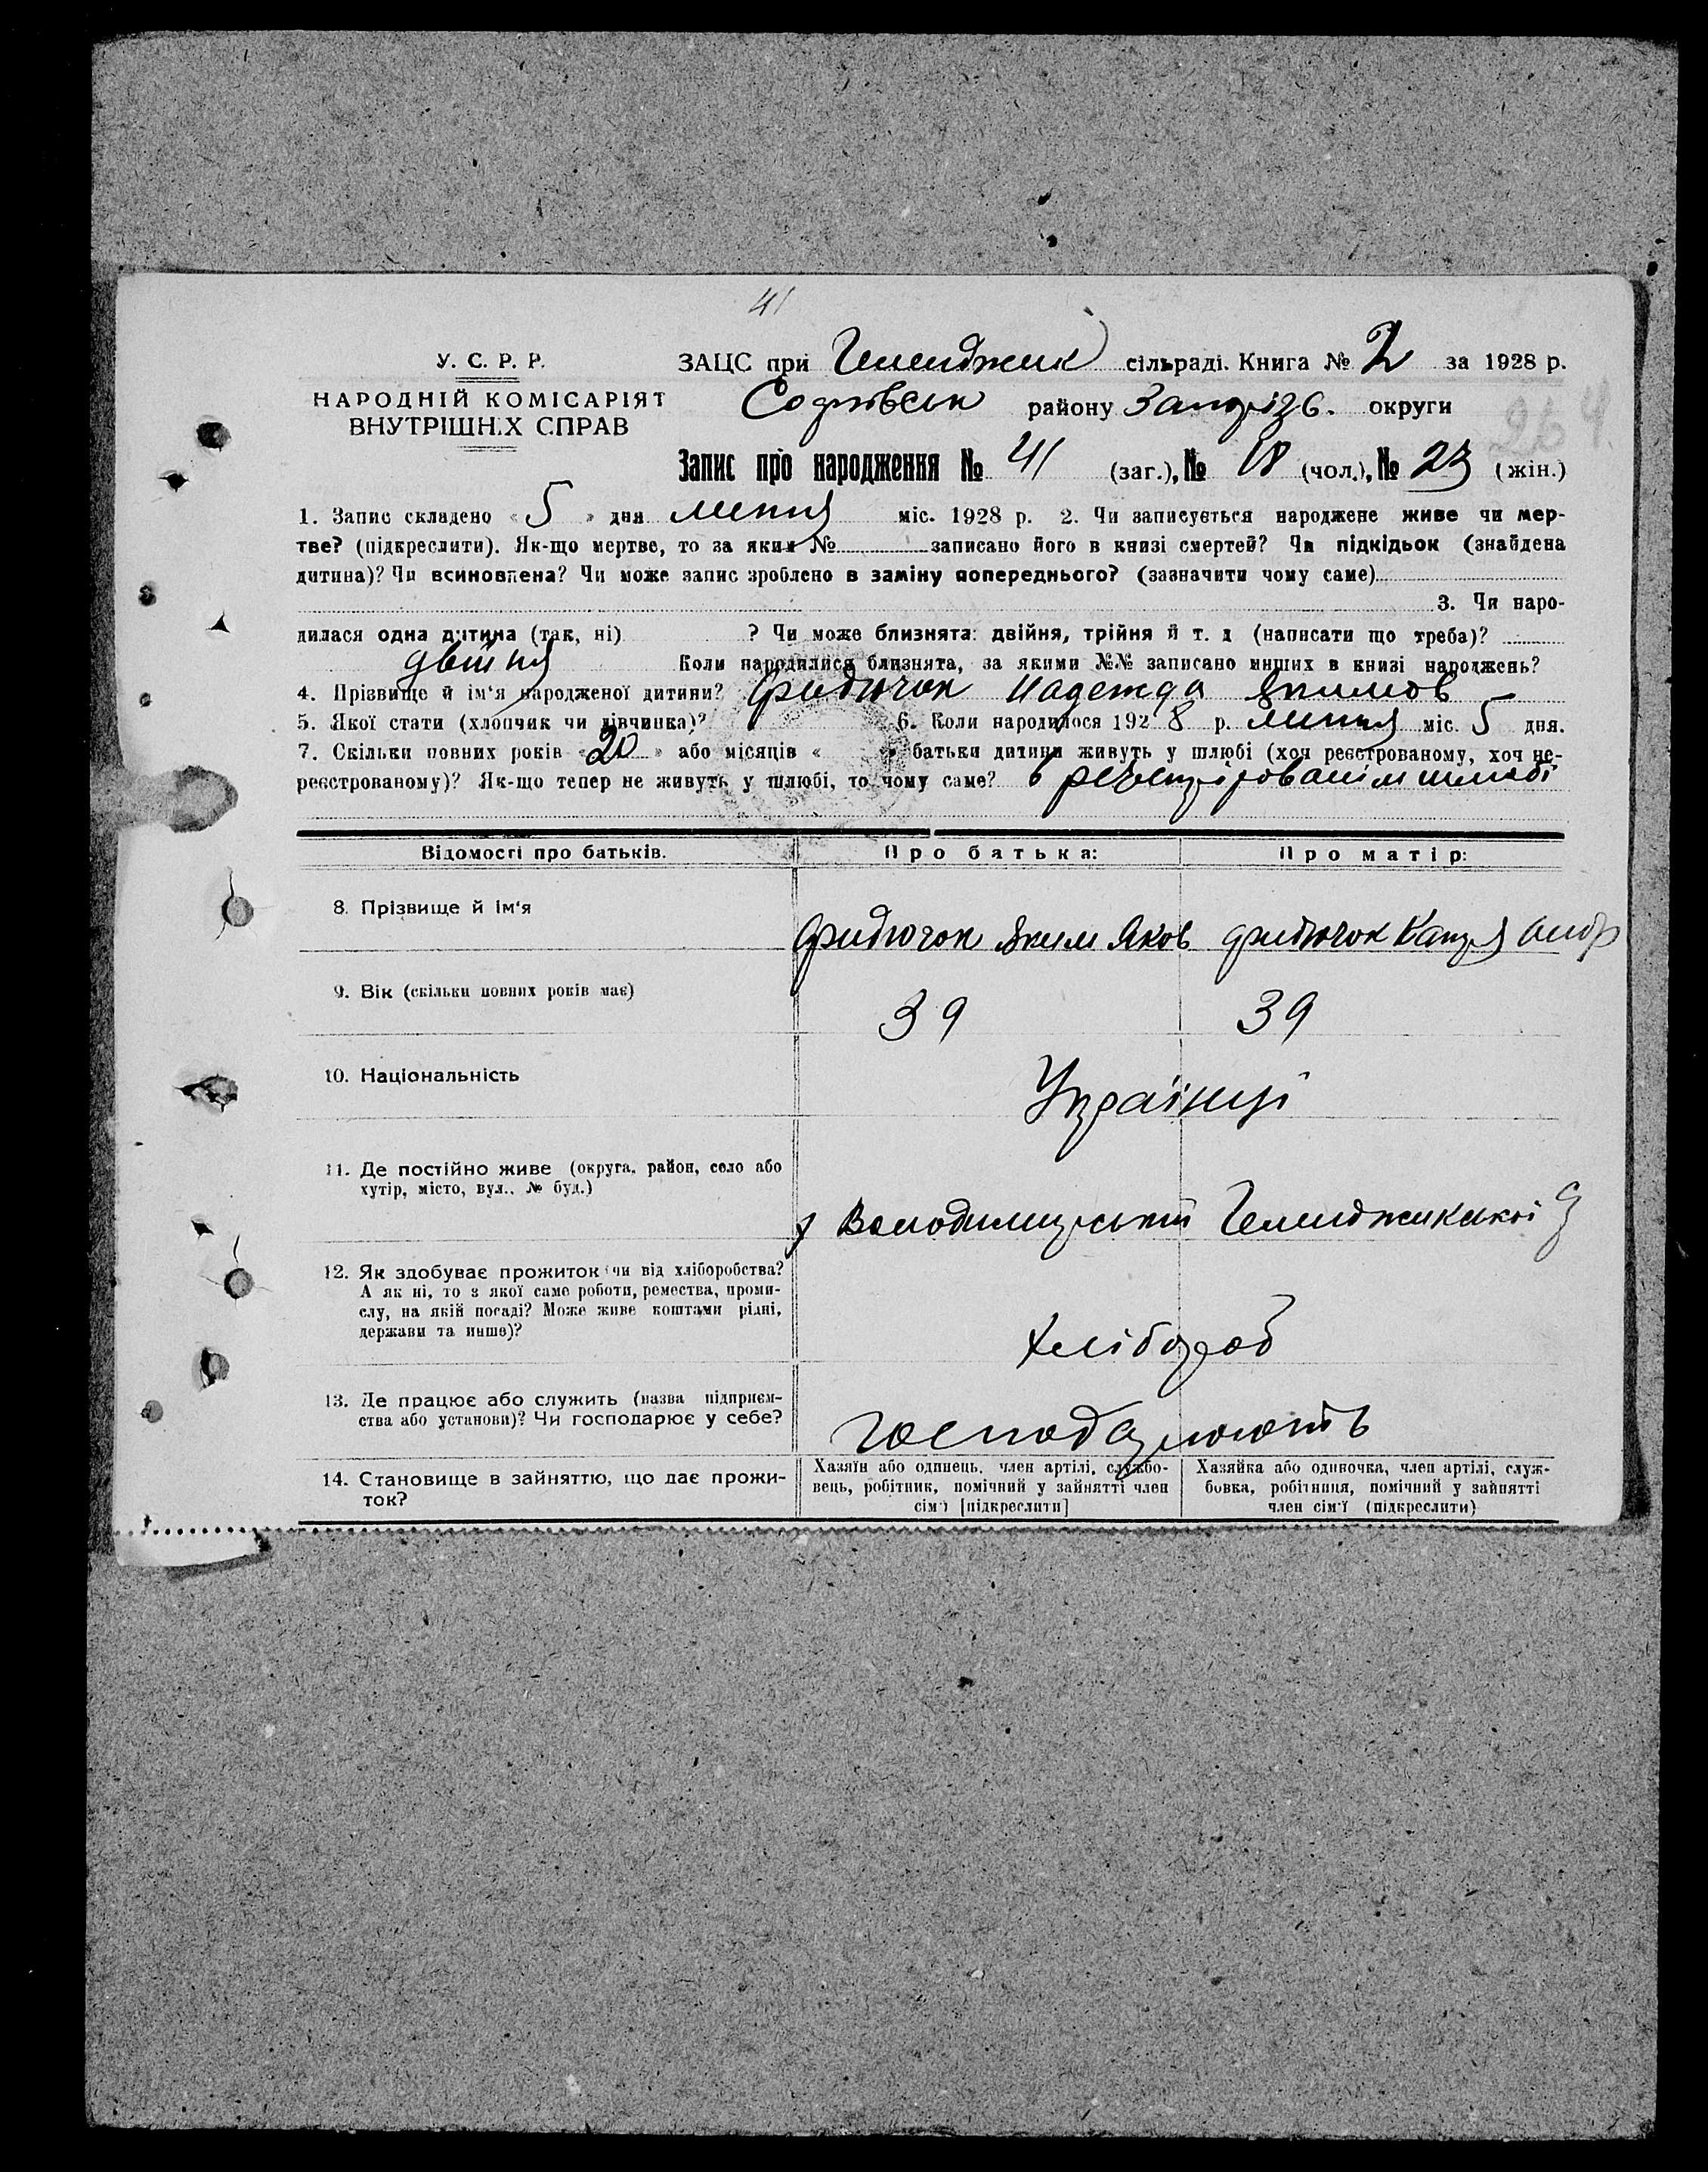 41
У. С. Р. Р. ЗАЦС при Геленджик сільраді. Книга № 2 за 1928 р.
НАРОДНІЙ КОМІСАРІЯТ Софіївськ району Запоріз6. округи
ВНУТРІШНІХ СПРАВ
264
Запис про народження № 41 (заг.), № 18 (чол.), № 23 (жін.)
1. Запис складено « 5 » дня липня міс. 1928 р. 2. Чи записується народжене живе чи мер-
тве? (підкреслити). Як-що мертве, то за яким № записано його в книзі смертей? Чи підкідьок (знайдена
дитина)? Чи всиновлена? Чи може запис зроблено в заміну попереднього? (зазначити чому саме)
3. Чи наро-
дилася одна дитина (так, ні) ? Чи може близнята: двійня, трійня й т. д (написати що треба)?
двійня Коли народилися близнята, за якими №№ записано инших в книзі народжень?
4. Прізвище й ім'я народженої дитини? Фридючок Надежда Якимов
5. Якої стати (хлопчик чи дівчинка)? 6. Коли народилося 192 8 р. липня міс. 5 дня.
7. Скільки повних років « 20 » або місяців « » батьки дитини живуть у шлюбі (хоч реєстрованому, хоч не-
реєстрованому)? Як-що тепер не живуть у шлюбі, то чому саме? в регестрованім шлюбі
Відомості про батьків. Про батька: Про матір:
8. Прізвище й ім'я Фридючок Яким Яков Фридючок Катря
9. Вік (скільки повних років має) 39 39
10. Національність Українці
11. Де постійно живе (округа, район, село або
хутір, місто, вул., № буд.)
Геленджикської
12. Як здобуває прожиток (чи від хліборобства?
А як ні, то з якої саме роботи, ремества, проми-
слу, на якій посаді? Може живе коштами рідні,
держави та инше)?
хлібороб
13. Де працює або служить (назва підприєм-
ства або установи)? Чи господарює у себе?
господарюють
14. Становище в зайняттю, що дає прожи-
ток?
Хазяїн або одинець, член артілі, службо-
вець, робітник, помічний у зайнятті член
сім'ї [підкреслити]
Хазяйка або одиночка, член артілі, служ-
бовка, робітниця, помічний у зайнятті
член сім'ї (підкреслити)